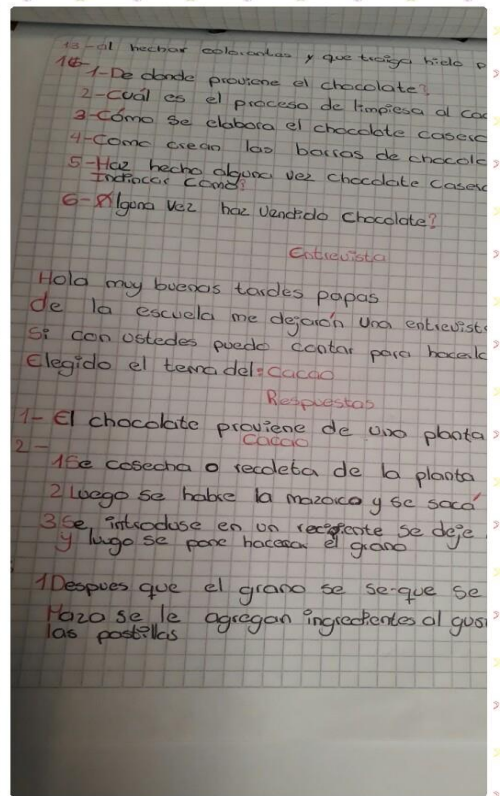 13-al hechar colorantes y que traiga hielo p
16-
1-De donde proviene el chocolate?
2-Cuál es el proceso de limpiesa al cac
3-Cómo se elabora el chocolate casero
4-Como crean las barras de chocola
5-Haz hecho alguna vez chocolate casero
Indiocar Como?
6-Alguna vez haz vendido chocolate?
Entrevista
Hola muy buenas tardes papas
de la escuela me dejarón una entrevista
si con ustedes puedo contar para hacerlo
Elegido el tema del: Cacao
Respuestas
1- El chocolate proviene de uno planta
Cacao
2-
1 Se cosecha o recoleta de la planta
2 Luego se habre la mazorca y se sacá
3 Se introduse en un recipiente se deje
y lugo se pone hacesar el grano
1 Despues que el grano se se-que se
Maza se le agregan ingredientes al gus
las pastillas